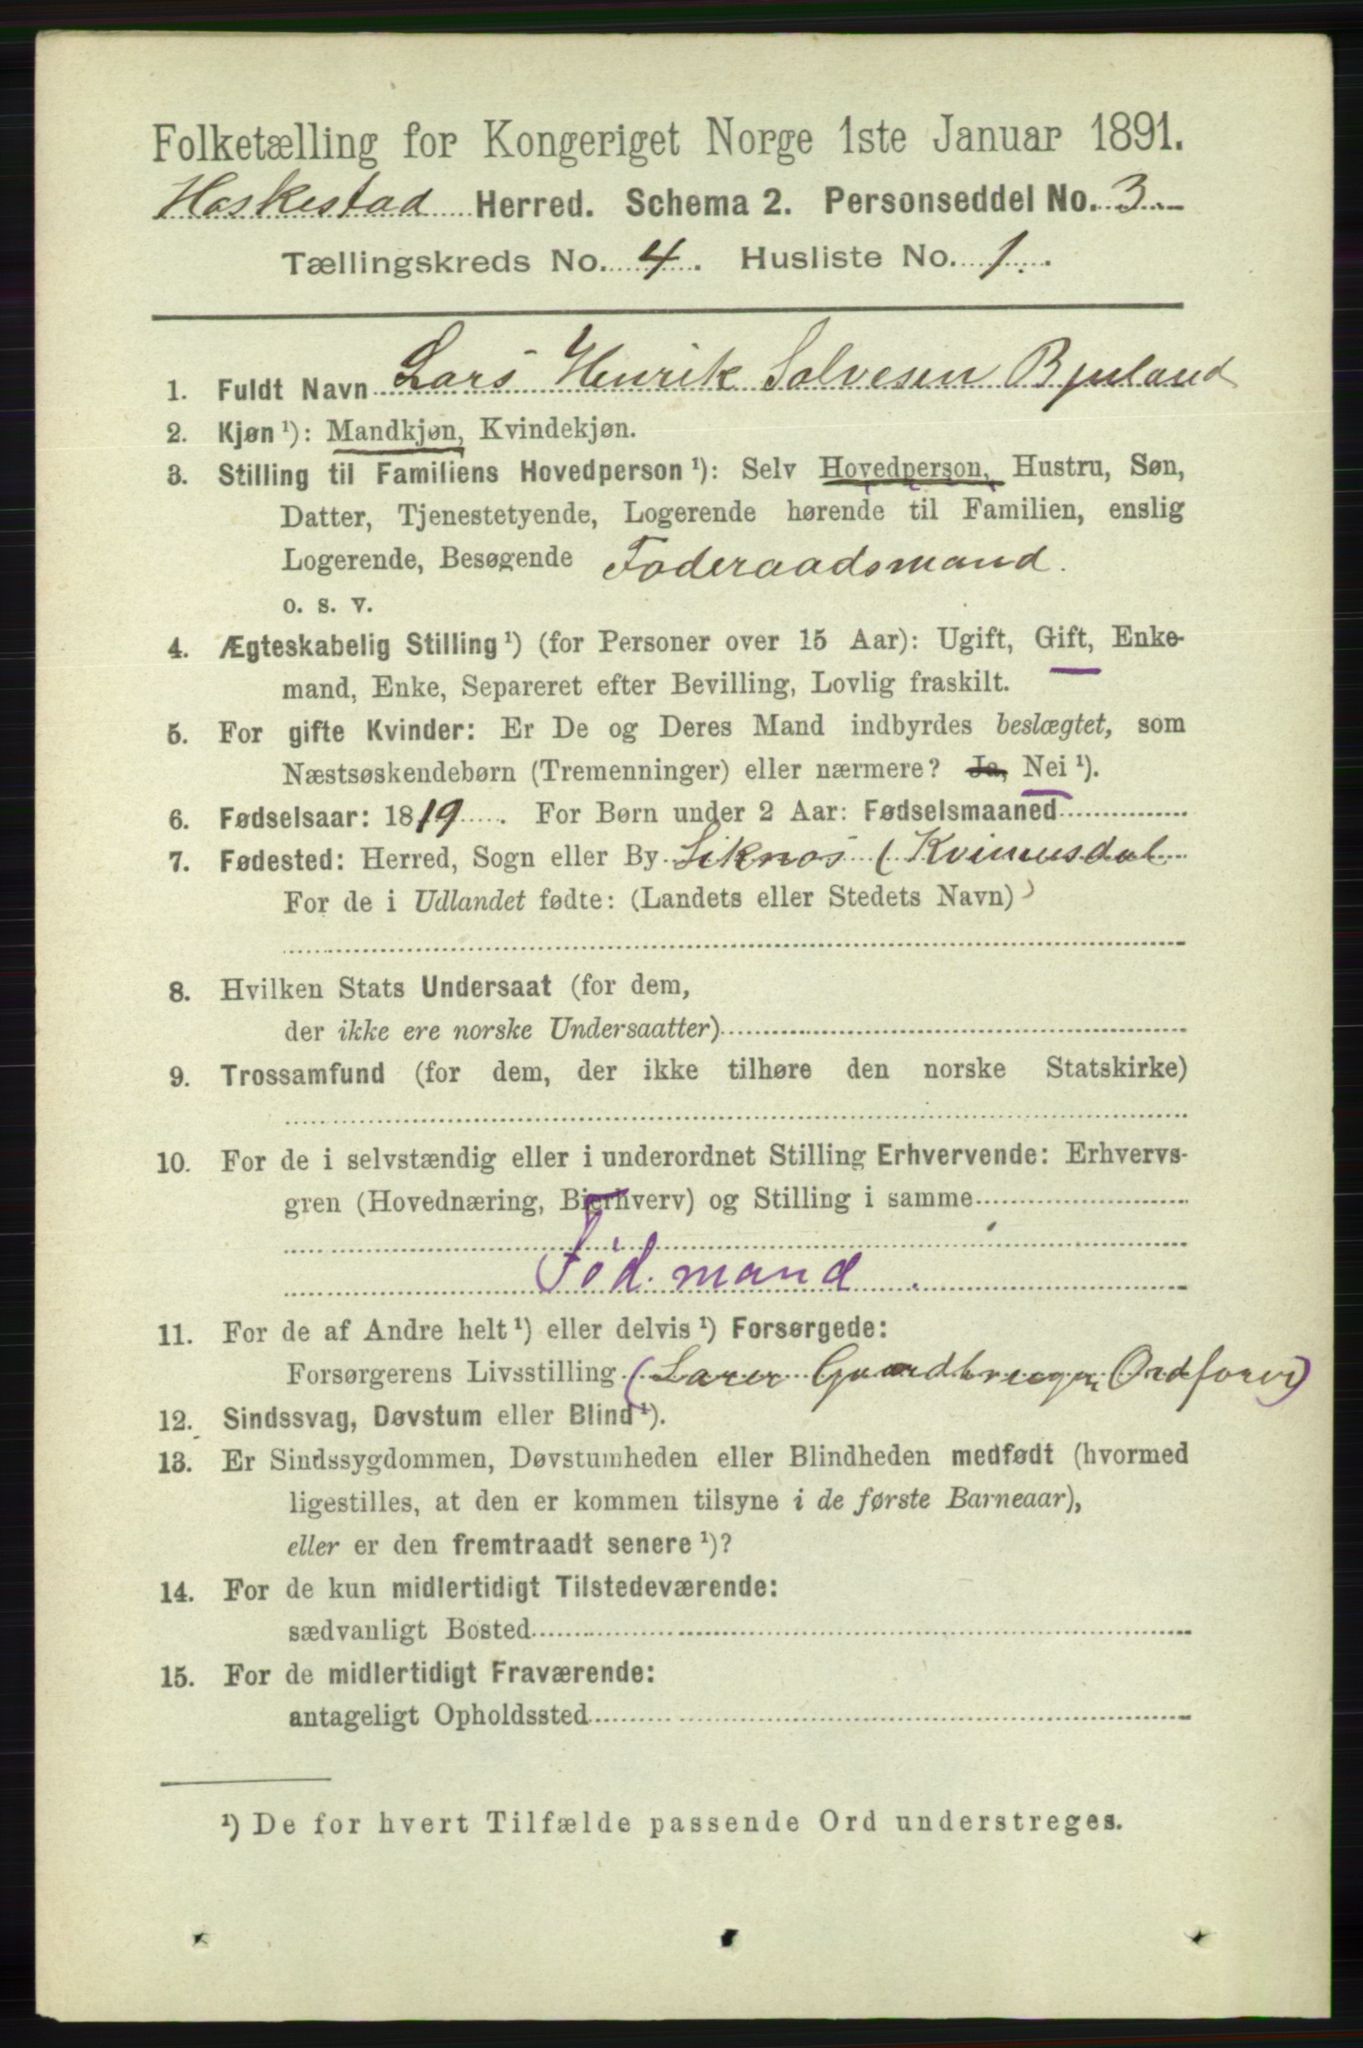 Folketælling for Kongeriget Norge 1ste Januar 1891.
Heskestad Herred. Schema 2. Personseddel No. 3.
Tællingskreds No. 4. Husliste No. 1.
1. Fuldt Navn Lars Henrik Salvesen Bjuland
2. Kjøn ¹): Mandkjøn, Kvindekjøn.
3. Stilling til Familiens Hovedperson ¹): Selv Hovedperson, Hustru, Søn,
Datter, Tjenestetyende, Logerende hørende til Familien, enslig
Logerende, Besøgende Føderaadsmand.
o. s. v.
4. Ægteskabelig Stilling ¹) (for Personer over 15 Aar): Ugift, Gift, Enke-
mand, Enke, Separeret efter Bevilling, Lovlig fraskilt.
5. For gifte Kvinder: Er De og Deres Mand indbyrdes beslægtet, som
Næstsøskendebørn (Tremenninger) eller nærmere? Ja, Nei ¹).
6. Fødselsaar: 1819. For Børn under 2 Aar: Fødselsmaaned
7. Fødested: Herred, Sogn eller By Liknes (Kvinnesdal
For de i Udlandet fødte: (Landets eller Stedets Navn) )
8. Hvilken Stats Undersaat (for dem,
der ikke ere norske Undersaatter)
9. Trossamfund (for dem, der ikke tilhøre den norske Statskirke)
10. For de i selvstændig eller i underordnet Stilling Erhvervende: Erhvervs-
gren (Hovednæring, Bierhverv) og Stilling i samme
Fød. mand
11. For de af Andre helt ¹) eller delvis ¹) Forsørgede:
Forsørgerens Livsstilling (Lærer Gaardbruger Ordfører)
12. Sindssvag, Døvstum eller Blind ¹).
13. Er Sindssygdommen, Døvstumheden eller Blindheden medfødt (hvormed
ligestilles, at den er kommen tilsyne i de første Barneaar),
eller er den fremtraadt senere ¹)?
14. For de kun midlertidigt Tilstedeværende:
sædvanligt Bosted
15. For de midlertidigt Fraværende:
antageligt Opholdssted
¹) De for hvert Tilfælde passende Ord understreges.